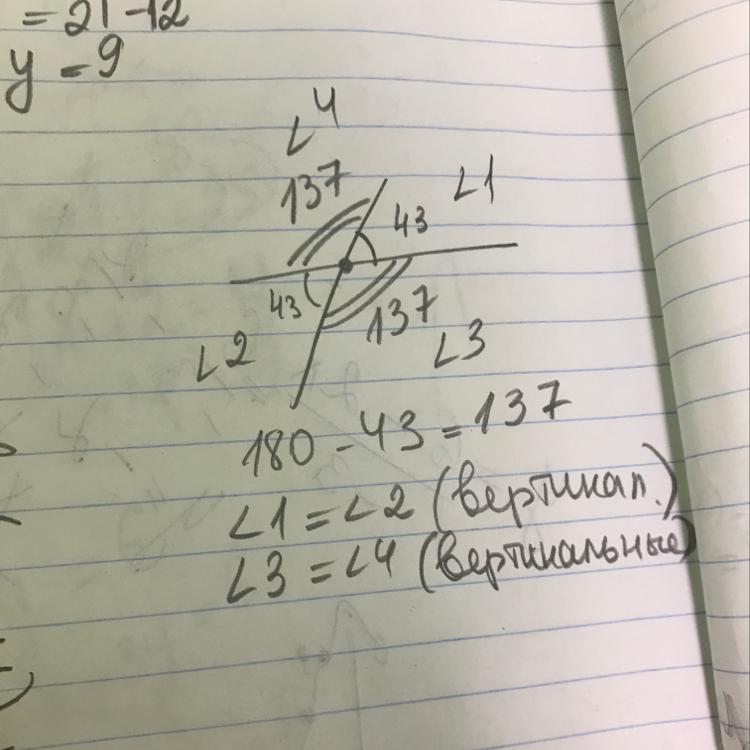 = 21 - 12
y = 9
∠4
137
∠1
43
43
137
∠2
∠3
180 - 43 = 137
∠1 = ∠2 (вертикал.)
∠3 = ∠4 (вертикальные)